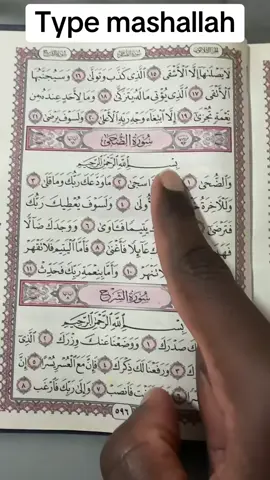 Type mashallah
لَا يَصْلَىٰهَآ إِلَّا ٱلْأَشْقَى ١٥ ٱلَّذِى كَذَّبَ وَتَوَلَّىٰ ١٦ وَسَيُجَنَّبُهَا
ٱلْأَتْقَى ١٧ ٱلَّذِى يُؤْتِى مَالَهُۥ يَتَزَكَّىٰ ١٨ وَمَا لِأَحَدٍ عِندَهُۥ مِن
نِّعْمَةٍ تُجْزَىٰٓ ١٩ إِلَّا ٱبْتِغَآءَ وَجْهِ رَبِّهِ ٱلْأَعْلَىٰ ٢٠ وَلَسَوْفَ يَرْضَىٰ ٢١
سُورَةُ الضُّحَىٰ
بِسْمِ ٱللَّهِ ٱلرَّحْمَٰنِ ٱلرَّحِيمِ
وَٱلضُّحَىٰ ١ سَجَىٰ ٢ مَا وَدَّعَكَ رَبُّكَ وَمَا قَلَىٰ ٣
وَلَلْأَخِرَةُ ٤ وَلَسَوْفَ يُعْطِيكَ رَبُّكَ
فَتَرْضَىٰٓ ٥ يَتِيمًا فَـَٔاوَىٰ ٦ وَوَجَدَكَ ضَآلًّا
عَآئِلًا فَأَغْنَىٰ ٨ فَأَمَّا ٱلْيَتِيمَ فَلَا تَقْهَرْ
٩ تَنْهَرْ ١٠ وَأَمَّا بِنِعْمَةِ رَبِّكَ فَحَدِّثْ ١١
سُورَةُ الشَّرْحِ
بِسْمِ ٱللَّهِ ٱلرَّحْمَٰنِ ٱلرَّحِيمِ
صَدْرَكَ ١ وَوَضَعْنَا عَنكَ وِزْرَكَ ٢ ٱلَّذِىٓ
٣ وَرَفَعْنَا لَكَ ذِكْرَكَ ٤ فَإِنَّ مَعَ ٱلْعُسْرِ يُسْرًا ٥ إِنَّ
فَٱنصَبْ ٧ وَإِلَىٰ رَبِّكَ فَٱرْغَب ٨
٥٩٦